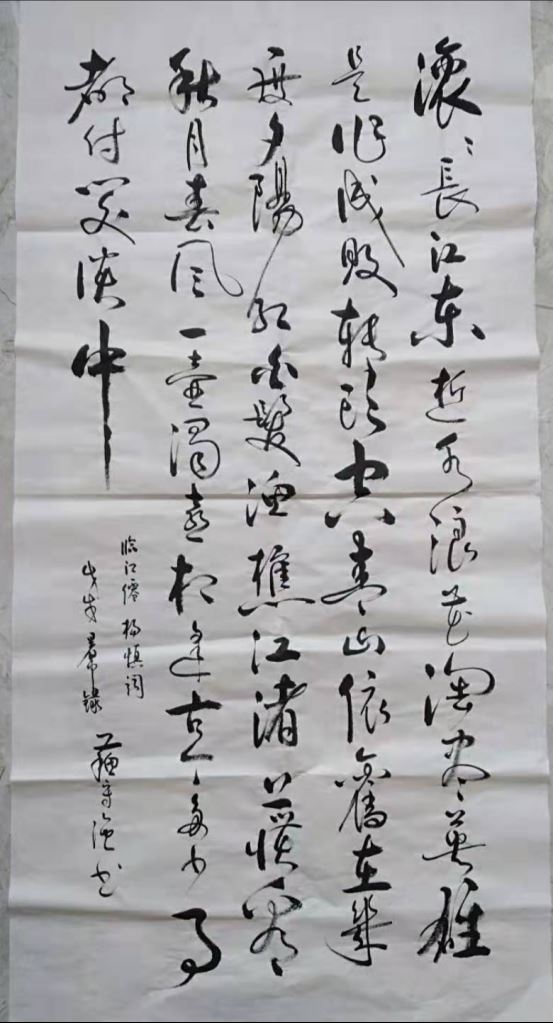 滚滚長江东逝水浪花淘尽英雄
是非成败转头空青山依舊在幾
度夕陽红白髮渔樵江渚上惯看
秋月春风一壶濁喜相逢古今多少事
都付笑谈中
临江僊 杨慎词
戊戌 书